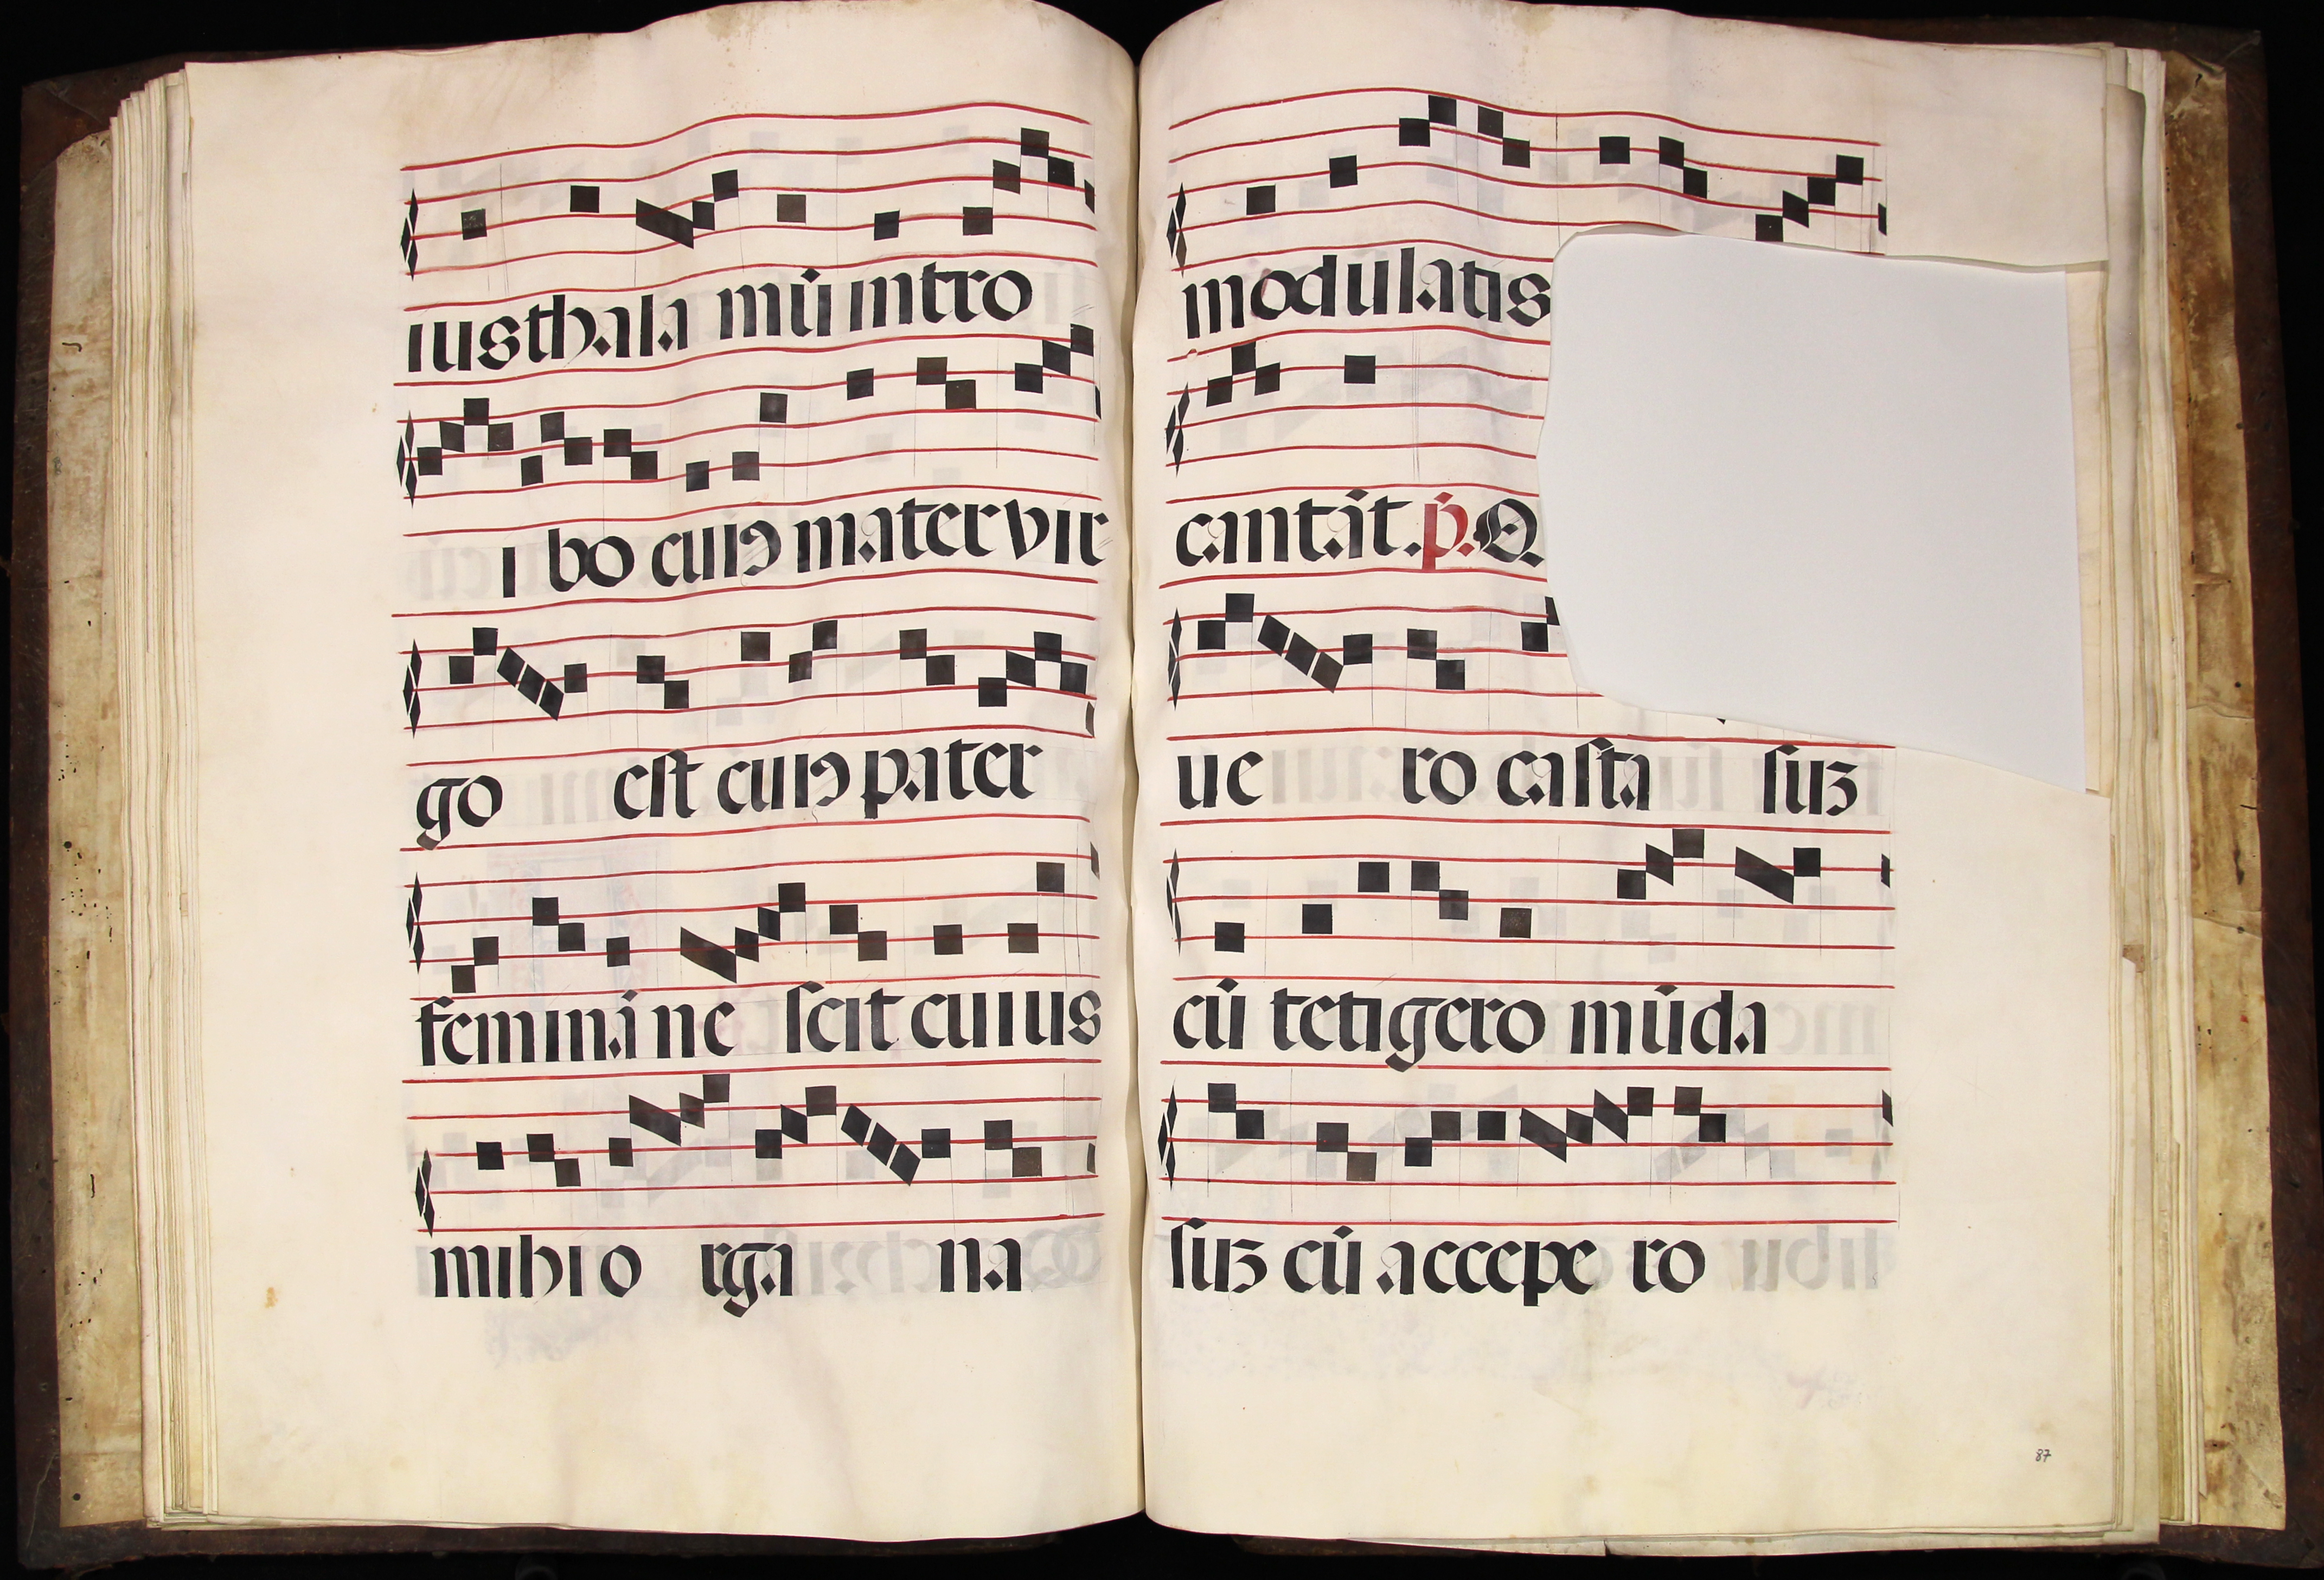 ius thala mū intro
i bo cuiꝰ mater vir
go est cuiꝰ pater
femina ne scit cuius
mihi o rga na
modulatis
cantāt. p̄. Q
ue ro casta suʒ
cū tetigero mūda
suʒ cū accepe ro
87